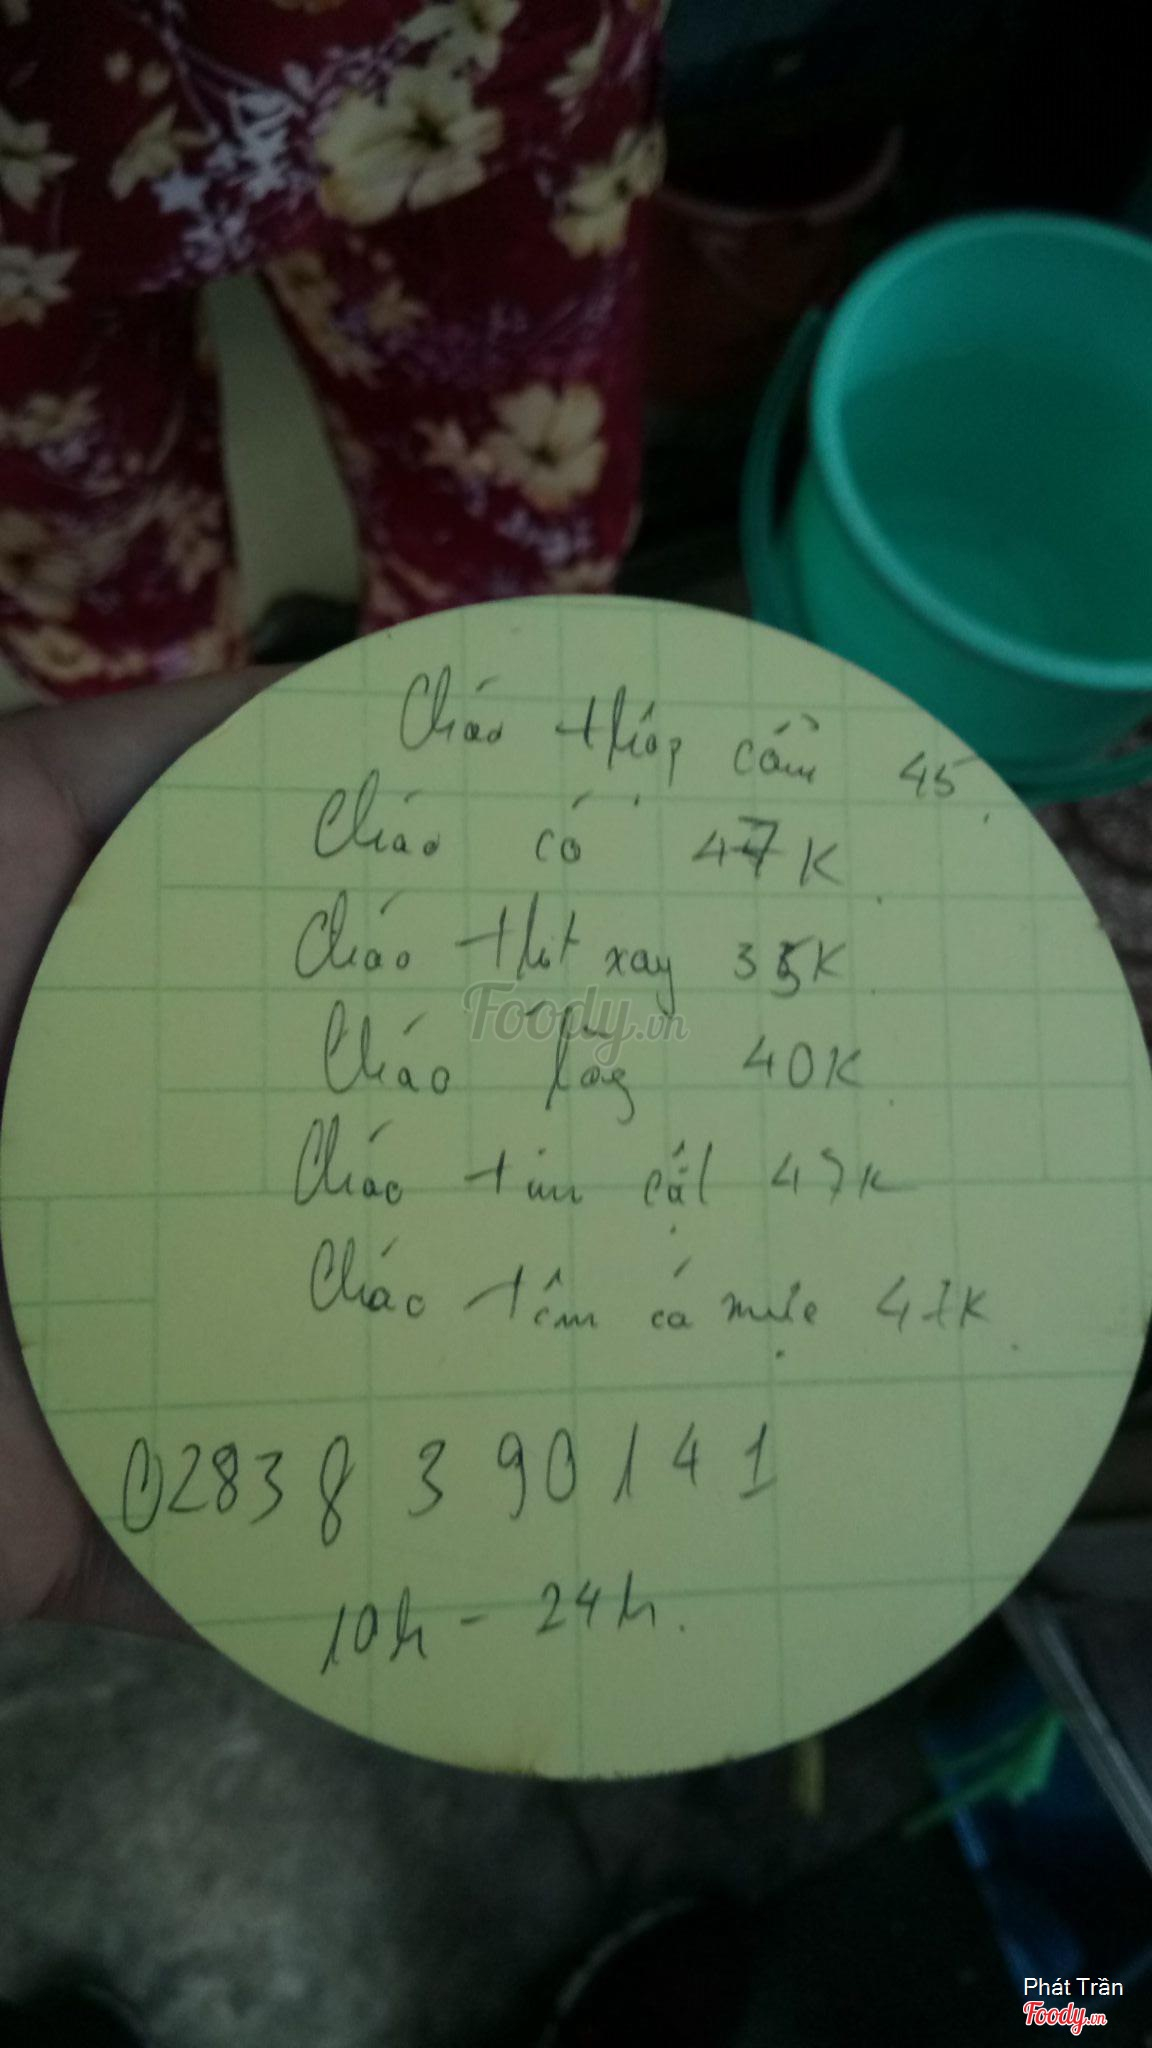 Cháo thập cẩm 45
Cháo cá 47K
Cháo thịt xay 35K
Foody.vn
Cháo lòng 40K
Cháo tim cật 47K
Cháo tôm cá mực 47K
02838390141
10h - 24h.
Phát Trần
Foody.vn